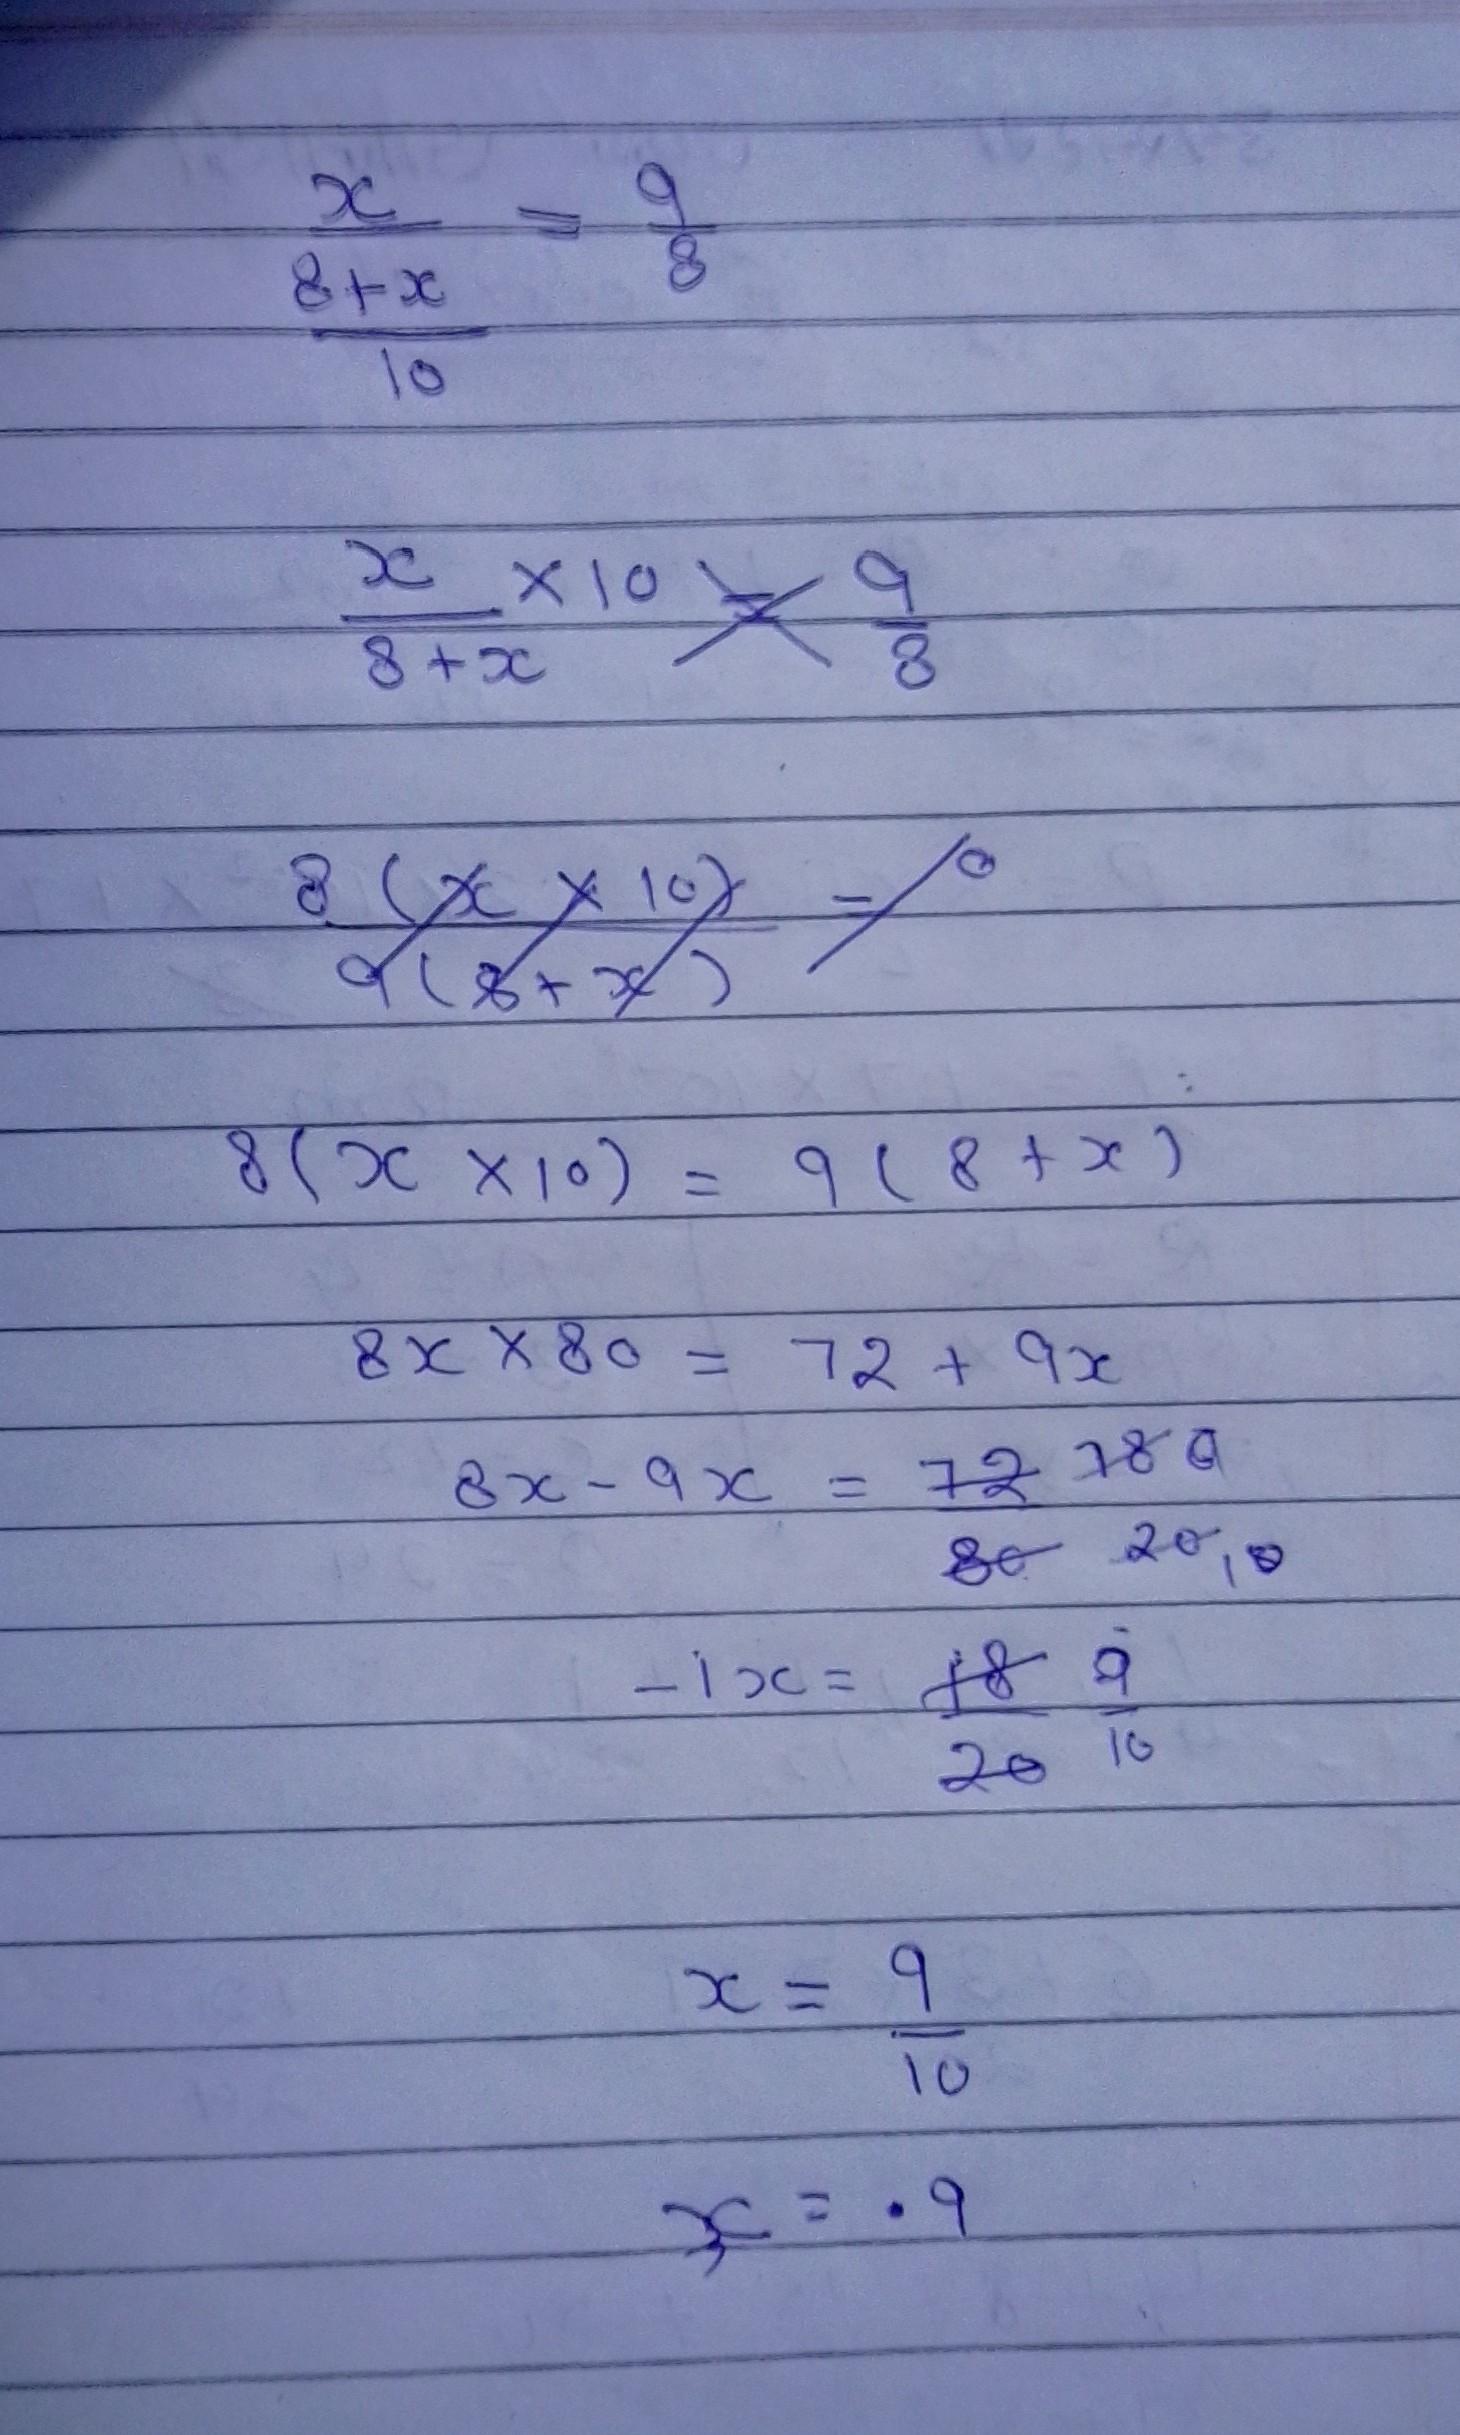 x/((8+x)/10) = 9/8
x/(8+x) × 10 = 9/8
8(x × 10)/9(8+x) = 0
8(x × 10) = 9(8+x)
8x × 80 = 72 + 9x
8x - 9x = 72/80 18/20 9/10
-1x = 18/20 9/10
x = 9/10
x = .9